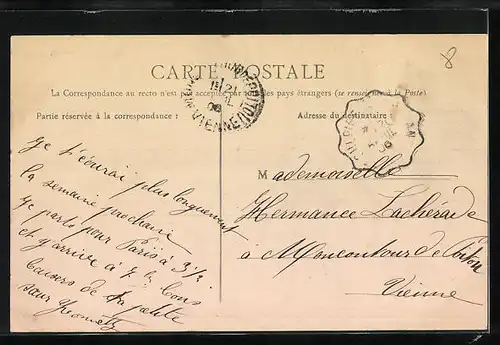 8
CARTE POSTALE
La Correspondance au recto n'est pas acceptée par tous les pays étrangers (se renseigner à la Poste)
Partie réservée à la correspondance :
Adresse du destinataire :
VIENNE
Je t'écrirai plus longuement
la semaine prochaine
Je pars pour Paris à 3 1/2
et j'arrive à 7 h. Bons
baisers de ta petite
sœur
Mademoiselle
Hermance Lachéraide
à Moncontour de Poitou
Vienne